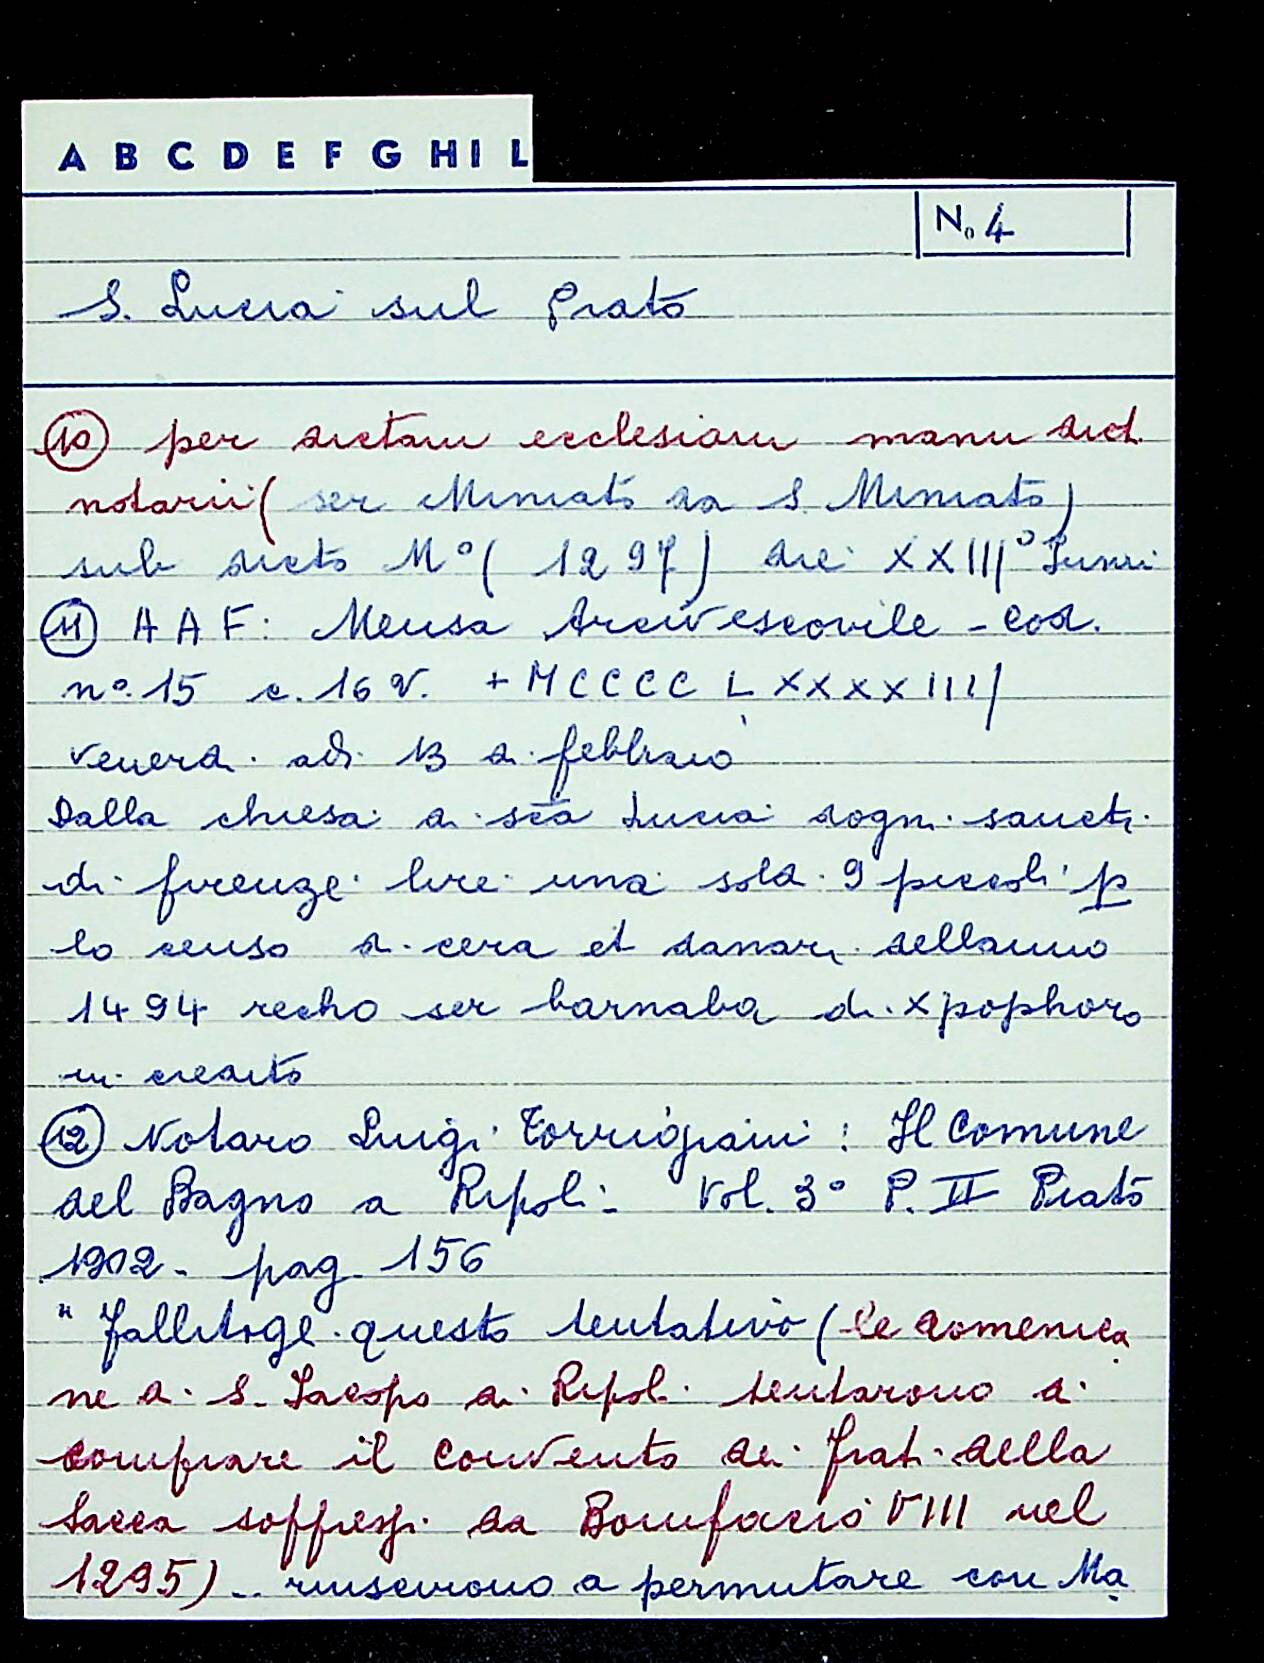 A B C D E F G H I L
No 4
S. Lucia sul Prato
10 per dictam ecclesiam manu dict.
notarii ( ser Miniato da S. Miniato)
sub dicto M° ( 1297) die XXIII° Junii
11 A A F: Mensa Arcivescovile - Cod.
n°. 15 c. 16 v. + M C C C C L X X X X III
venerdi adi 13 di febbraio
Dalla chiesa di scã Lucia dogni sancti
di firenze lire una sold. 9 piccoli p
lo censo di cera et danari dellanno
1494 recho ser barnaba di xpophoro
in credito
12 Notaro Luigi Torrigiani : Il Comune
del Bagno a Ripoli - Vol. 3° P. II Prato
1902 - pag. 156
" Fallitoge questo tentativo ( le domenica
ne di S. Jacopo di Ripoli tentarono di
comprare il convento dei frati della
Sacca soppressi da Bonifacio VIII nel
1295) .. riuscirono a permutare con Ma